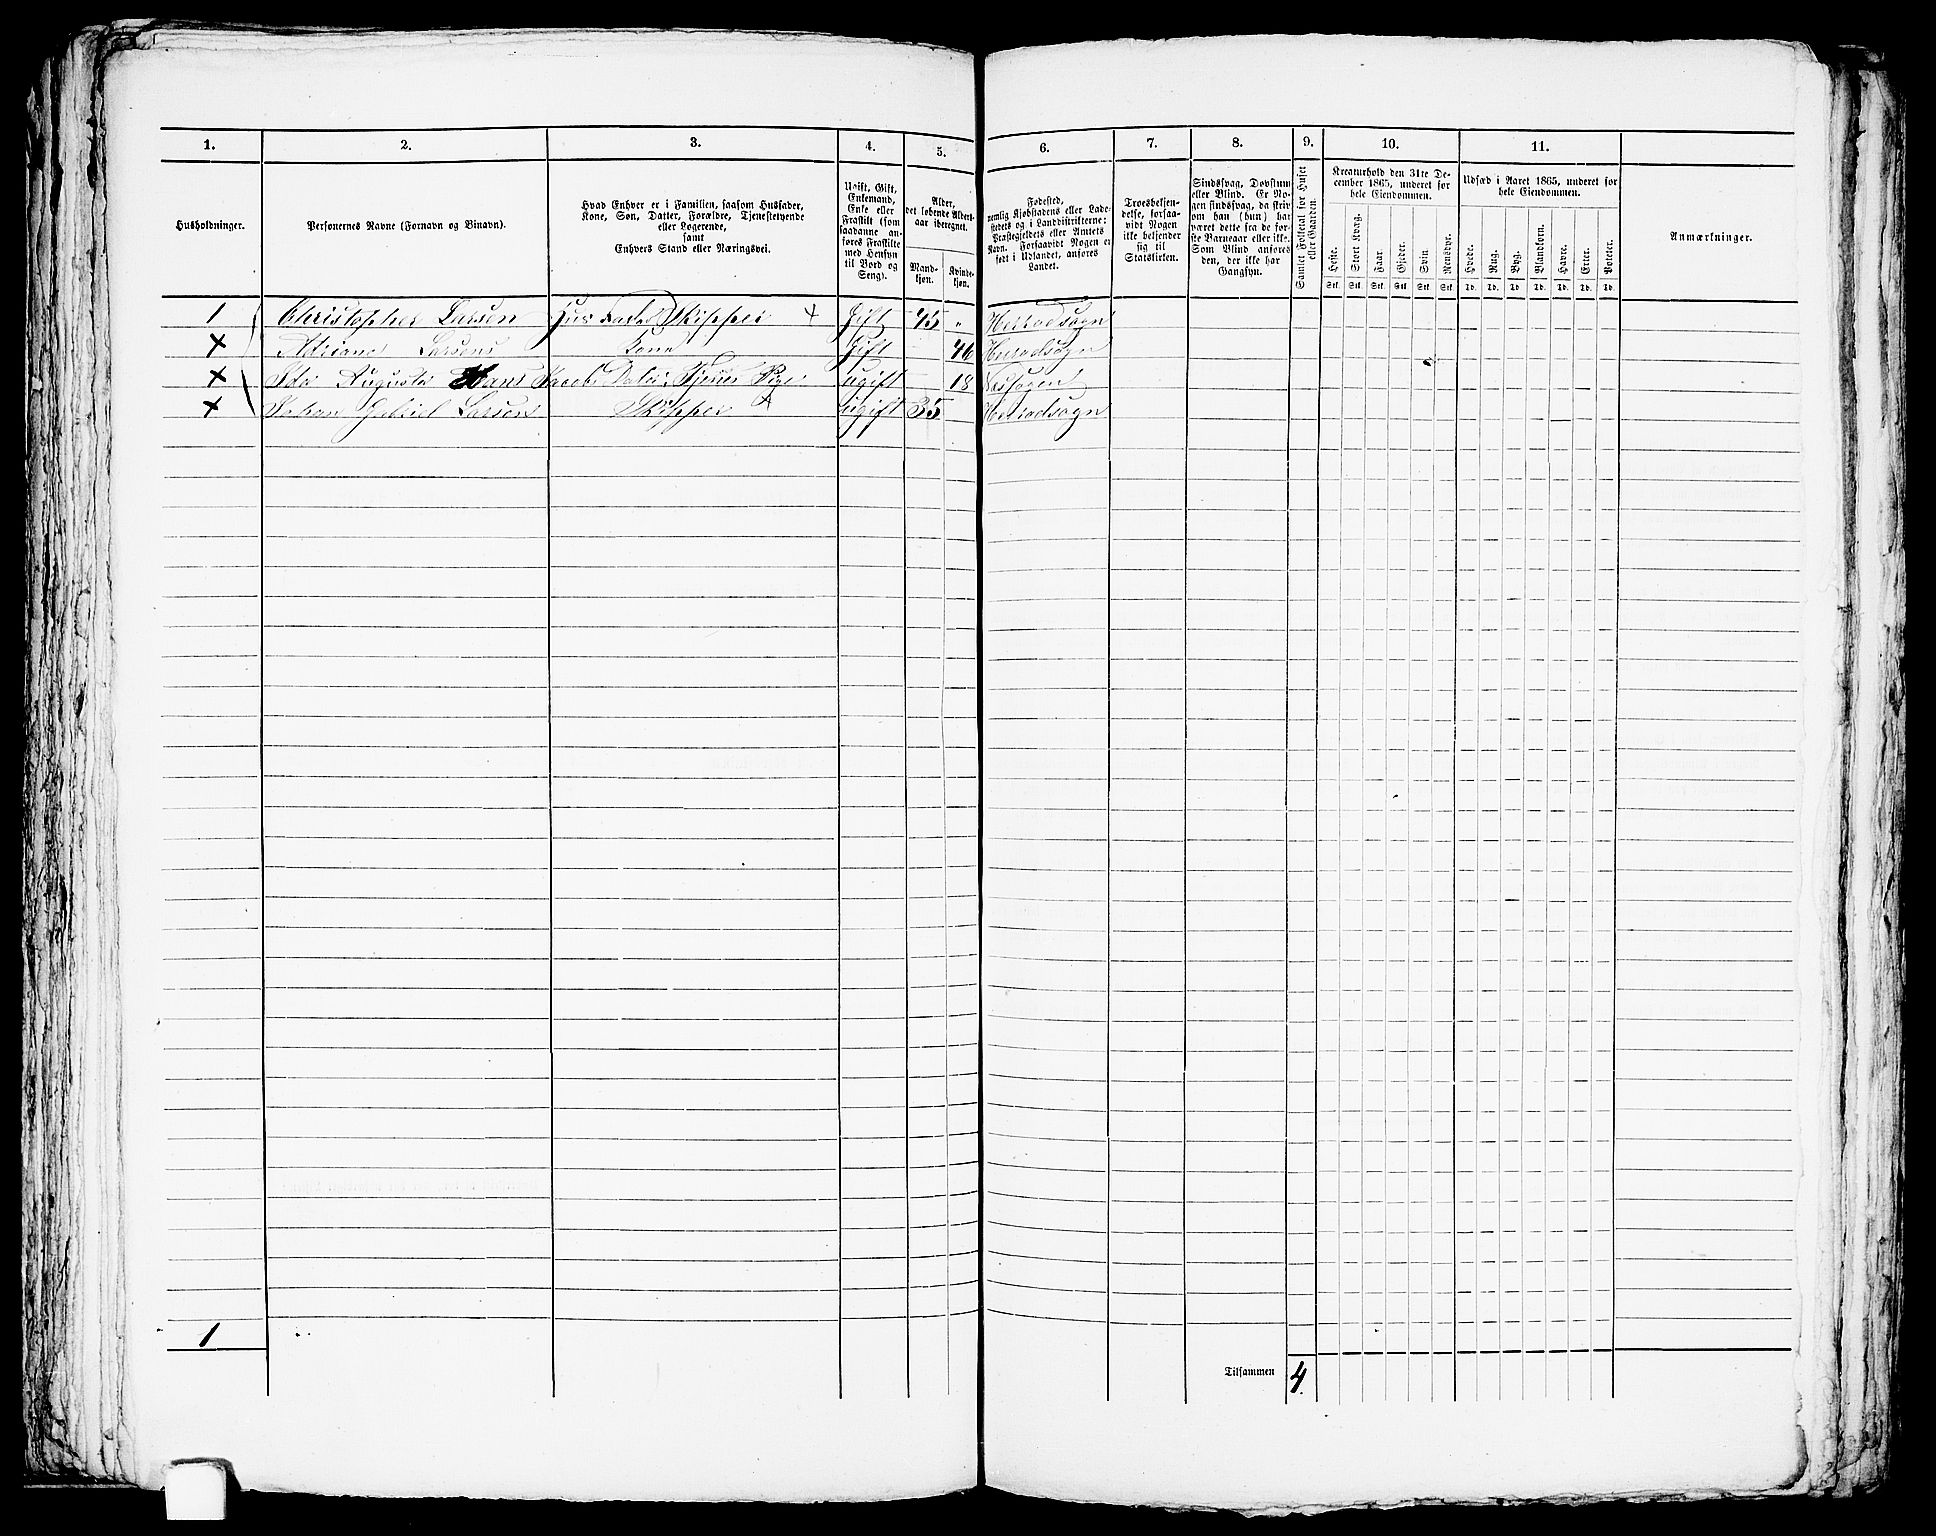 1. 2. 3. 4. 5. 6. 7. 8. 9. 10. 11.
Husholdninger.
Personernes Navne (Fornavn og Binavn).
Hvad Enhver er i Familien, saasom Husfader,
Kone, Søn, Datter, Forældre, Tjenestetyende
eller Logerende,
samt
Enhvers Stand eller Næringsvei.
Ugift, Gift,
Enkemand,
Enke eller
Fraskilt (som
saadanne an-
føres Fraskilte
med Hensyn
til Bord og
Seng).
Alder,
det løbende Alders-
aar iberegnet.
Mand-
kjøn.
Kvinde-
kjøn.
Fødested,
nemlig Kjøbstadens eller Lade-
stedets og i Landdistrikterne:
Præstegjeldets eller Amtets
Navn. Forsaavidt Nogen er
født i Udlandet, anføres
Landet.
Troesbekjen-
delse, forsaa-
vidt Nogen
ikke bekjender
sig til
Statskirken.
Sindssvag, Døvstum
eller Blind. Er No-
gen sindssvag, da skriv
om han (hun) har
været dette fra de før-
ste Barneaar eller ikke.
Som Blind anføres
den, der ikke har
Gangsyn.
Samlet Folketal for Huset
eller Gaarden.
Kreaturhold den 31te De-
cember 1865, underet for
hele Eiendommen.
Heste. Stort Kvæg. Faar. Gjeder. Svin. Rensdyr.
Stk. Stk. Stk. Stk. Stk. Stk.
Udsæd i Aaret 1865, underet for
hele Eiendommen.
Hvede. Rug. Byg. Blandkorn. Havre. Erter. Poteter.
Td. Td. Td. Td. Td. Td. Td.
Anmærkninger.
1 Christopher Larsen Husfader Skipper + Gift 45 " Herredsogn
x Larsens Kone Gift 46 Herredsogn
x Ida Augusta Hans Jacobs Tjener Pige Ugift 18
x Johan Gabriel Larsen Skipper x Ugift 35 Herredsogn
1
Tilsammen 4.